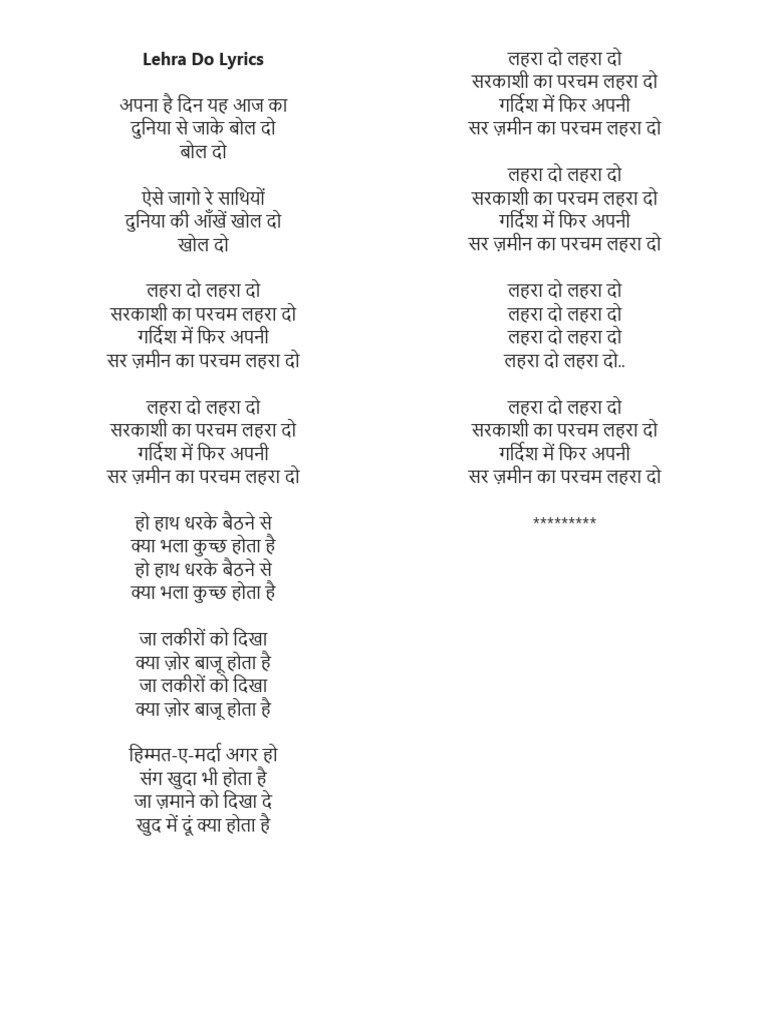 Lehra Do Lyrics
अपना है दिन यह आज का
दुनिया से जाके बोल दो
बोल दो
ऐसे जागो रे साथियों
दुनिया की आँखें खोल दो
खोल दो
लहरा दो लहरा दो
सरकाशी का परचम लहरा दो
गर्दिश में फिर अपनी
सर ज़मीन का परचम लहरा दो
लहरा दो लहरा दो
सरकाशी का परचम लहरा दो
गर्दिश में फिर अपनी
सर ज़मीन का परचम लहरा दो
हो हाथ धरके बैठने से
क्या भला कुच्छ होता है
हो हाथ धरके बैठने से
क्या भला कुच्छ होता है
जा लकीरों को दिखा
क्या ज़ोर बाजू होता है
जा लकीरों को दिखा
क्या ज़ोर बाजू होता है
हिम्मत-ए-मर्दा अगर हो
संग खुदा भी होता है
जा ज़माने को दिखा दे
खुद में दूं क्या होता है
लहरा दो लहरा दो
सरकाशी का परचम लहरा दो
गर्दिश में फिर अपनी
सर ज़मीन का परचम लहरा दो
लहरा दो लहरा दो
सरकाशी का परचम लहरा दो
गर्दिश में फिर अपनी
सर ज़मीन का परचम लहरा दो
लहरा दो लहरा दो
लहरा दो लहरा दो
लहरा दो लहरा दो
लहरा दो लहरा दो..
लहरा दो लहरा दो
सरकाशी का परचम लहरा दो
गर्दिश में फिर अपनी
सर ज़मीन का परचम लहरा दो
*********